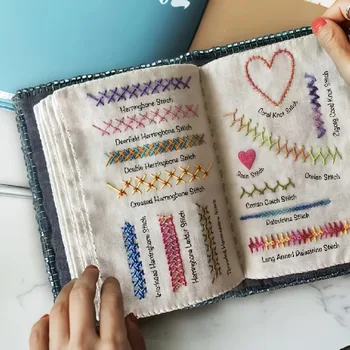 Herringbone Stitch
Deerfield Herringbone Stitch
Double Herringbone Stitch
Crossed Herringbone Stitch
Interlaced Herringbone Stitch
Herringbone Ladder Stitch
Stitch
Coral Knot Stitch
Zigzag Coral Knot Stitch
Stitch
Cretan Stitch
Cretan Catch Stitch
Palestrina Stitch
Long Armed Palestrina Stitch